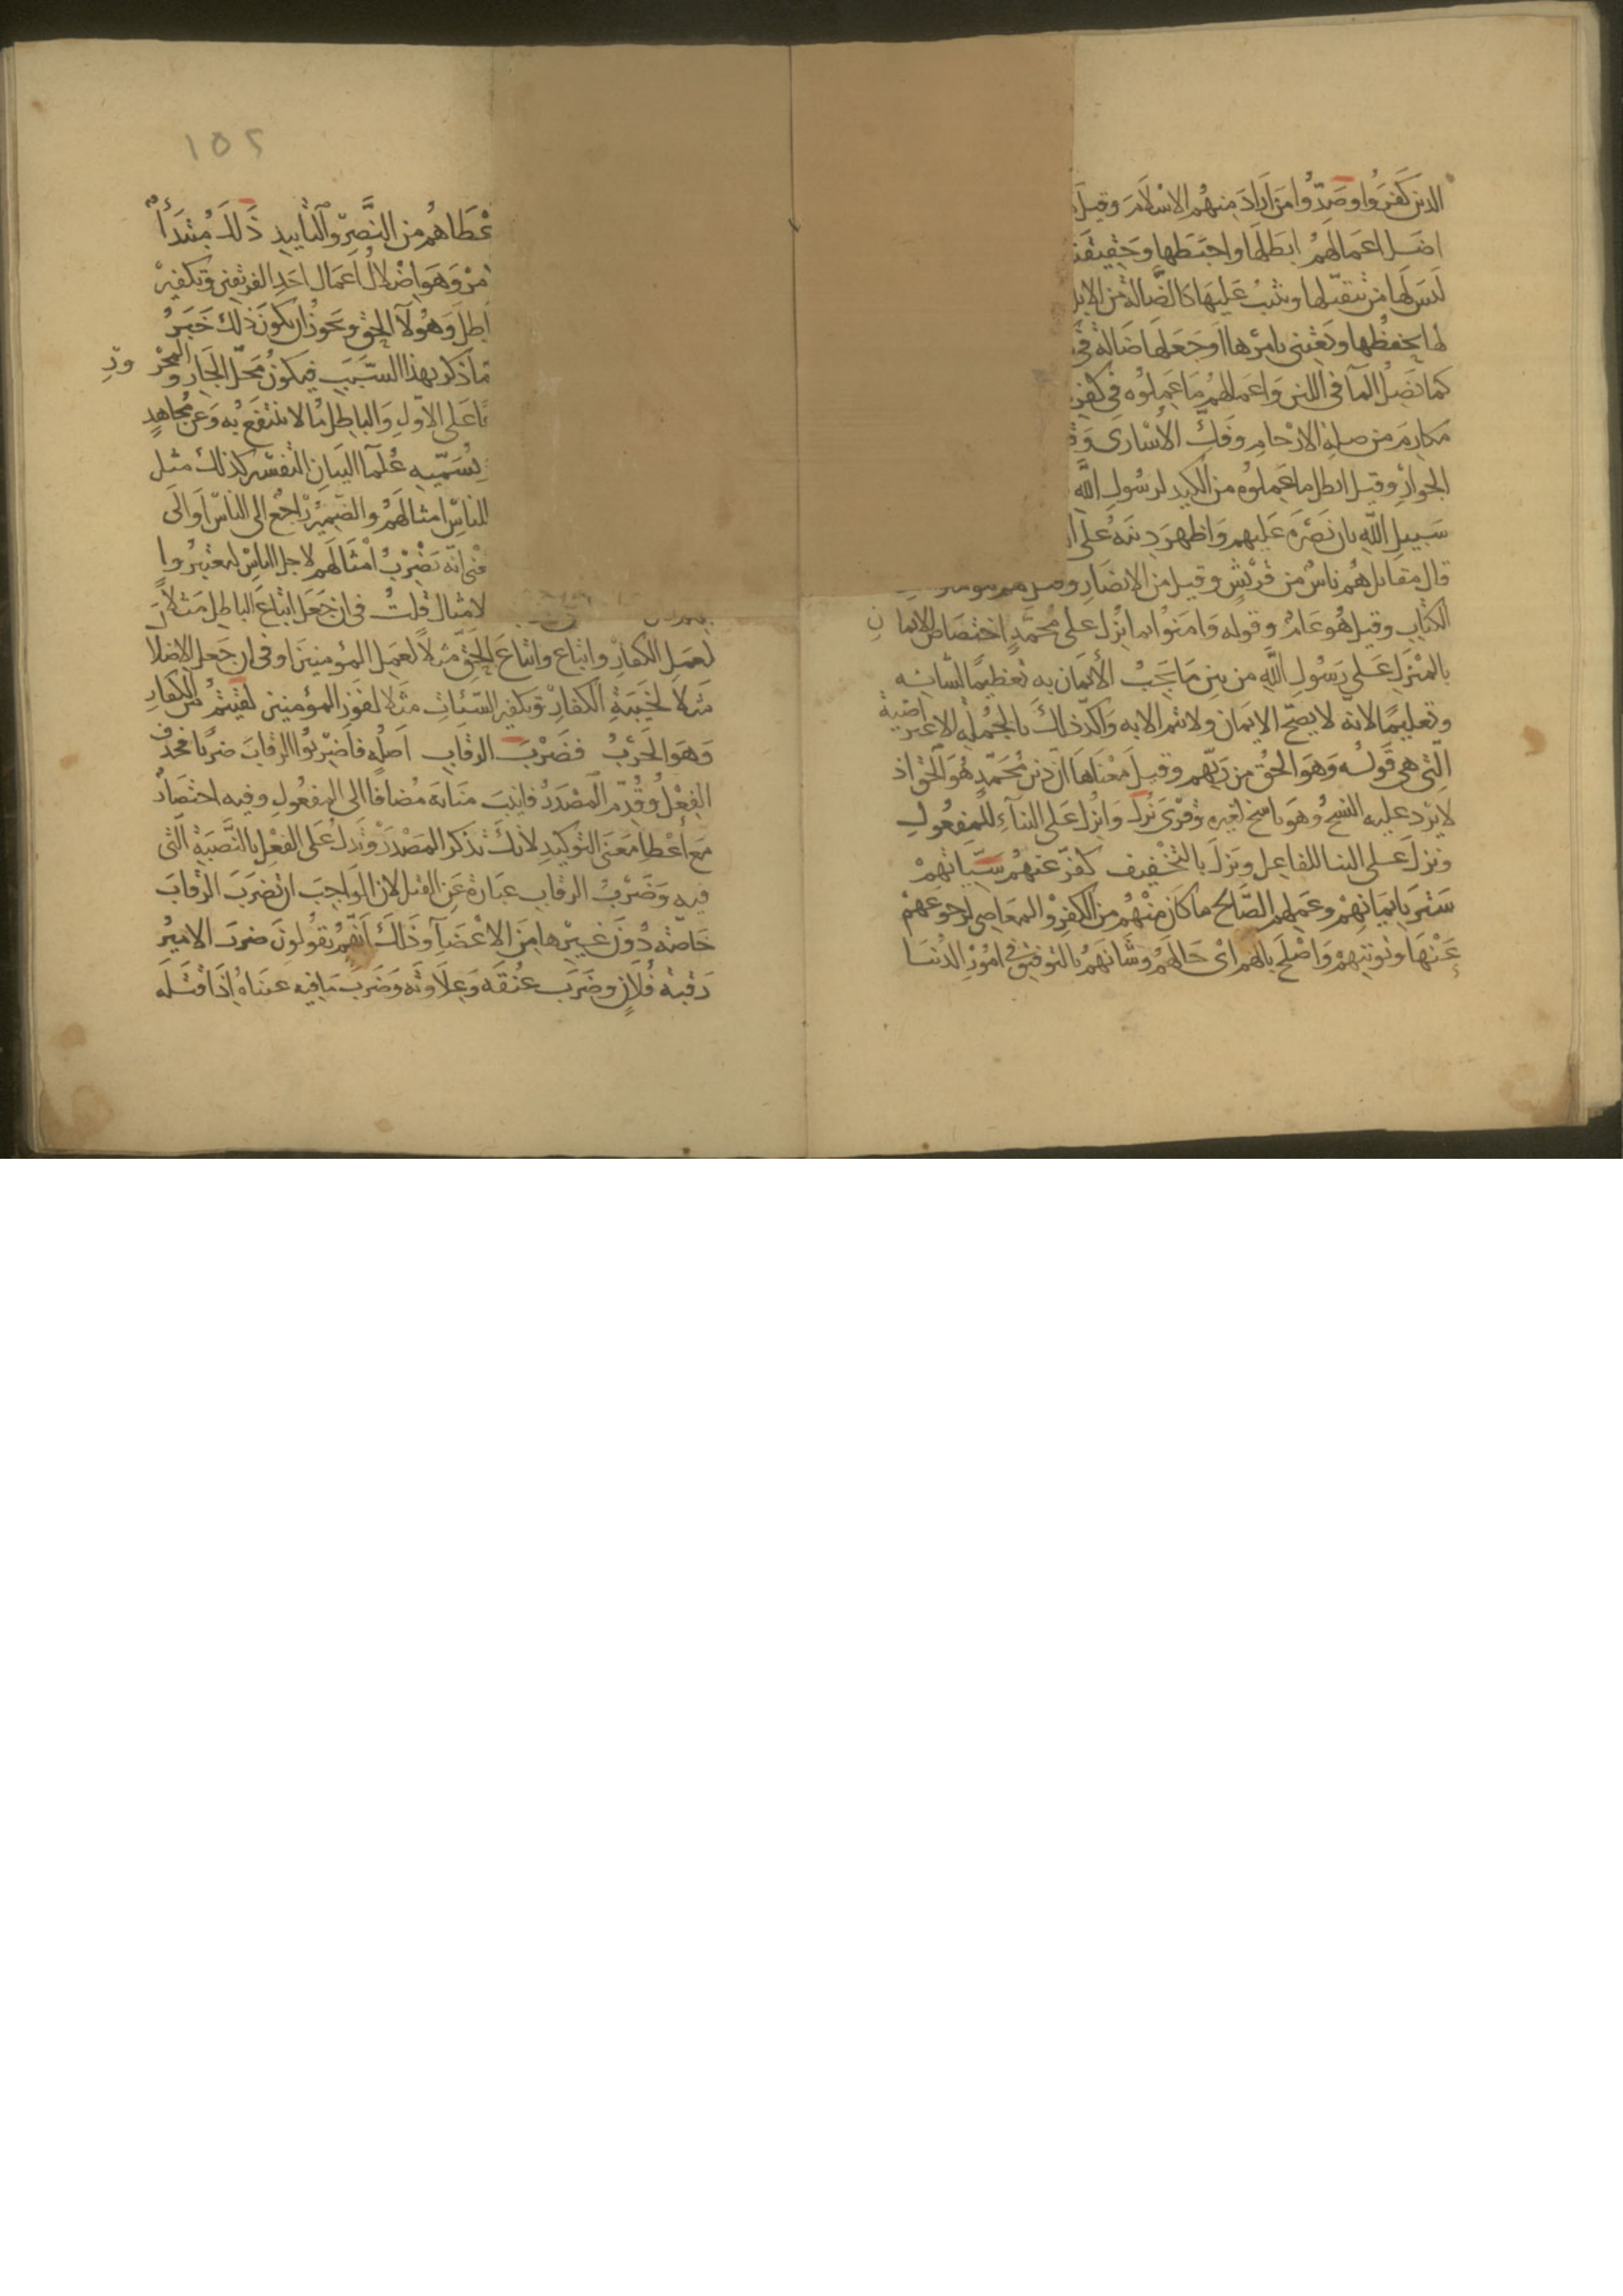 الذين كَفَرُوا وصَدّوا من اراد منهم الاسْلام وقيل
اضل اعمالهم ابطلها واحبطها وحقيقته
ليس لها من يتقبلها ويثيب عليها كالضّالة من الابل
لها يحفظها ويعتنى بامرها او جعلها ضالة فى
كما يضل الما فى اللبن واعمالهم ما عملوه فى كفر
مكارم من صلة الارحام وفك الاسارى و
الجوار وقيل ابطل ما عملوه من الكيد لرسول الله
سبيل الله بان نصره عليهم واظهر دينه على ا
قال مقاتل هم ناس من قريش وقيل من الانصار
الكتاب وقيل هو عام وقوله وامنوا بما نزل على محمد اختصاص للايمان
بالمنزل على رسول الله من بين ما يجب الايمان به تعظيما لشانه
وتعليما لانه لا يصح الايمان ولا يتم الا به واكد ذلك بالجملة الاعتراضية
التى هى قوله وهو الحق من ربهم وقيل معناها ان دين محمد هو الحق اذ
لا يرد عليه النسخ وهو ناسخ لغيره وقرئ نزل وانزل على البنآء للمفعول
ونزل على البنا للفاعل ونزل بالتخفيف كفر عنهم سيّاتهم
ستر بايمانهم وعملهم الصالح ما كان منهم من الكفر والمعاصى لرجوعهم
عنها وتوبتهم واصلح بالهم اى حالهم وشانهم بالتوفيق فى امور الدنيا
١٥٢
عْطاهم من النصر والتاييد ذلك مبتدأ
مر وهو اضلال اعمال احد الفريقين وتكفير
اطل وهولآ الحق ويجوز ان يكون ذلك خبر
ما ذكر بهذا السبب فيكون محل الجار والمجرور
ا على الاول والباطل ما لا ينتفع به وعن مجاهد
يسميه علمآ البيان التفسير كذلك مثل
للناس امثالهم والضمير راجع الى الناس او الى
عنى انه يضرب امثالهم لاجل الناس ليعتبروا
لامثال قلت فى ان جعل اتباع الباطل مثلا
لعمل الكفار واتباع واتباع الحق مثلا لعمل المؤمنين او فى ان جعل الاضلا
مثلا لخيبة الكفار وتكفير السيئات مثلا لفوز المؤمنين لقيتم من الكفار
وهو الحرب فضرب الرقاب اصله فاضربوا الرقاب ضربا فحذف
الفعل وقدم المصدر فانيب منابه مضافا الى المفعول وفيه اختصار
مع اعطا معنى التوكيد لانك تذكر المصدر وتدل على الفعل بالنصبة التى
فيه وضرب الرقاب عبارة عن القتل لان الواجب ان تضرب الرقاب
خاصة دون غيرها من الاعضآ وذلك انهم يقولون ضرب الامير
رقبة فلان وضرب عنقه وعلاوته وضرب ما فيه عيناه اذا قتله